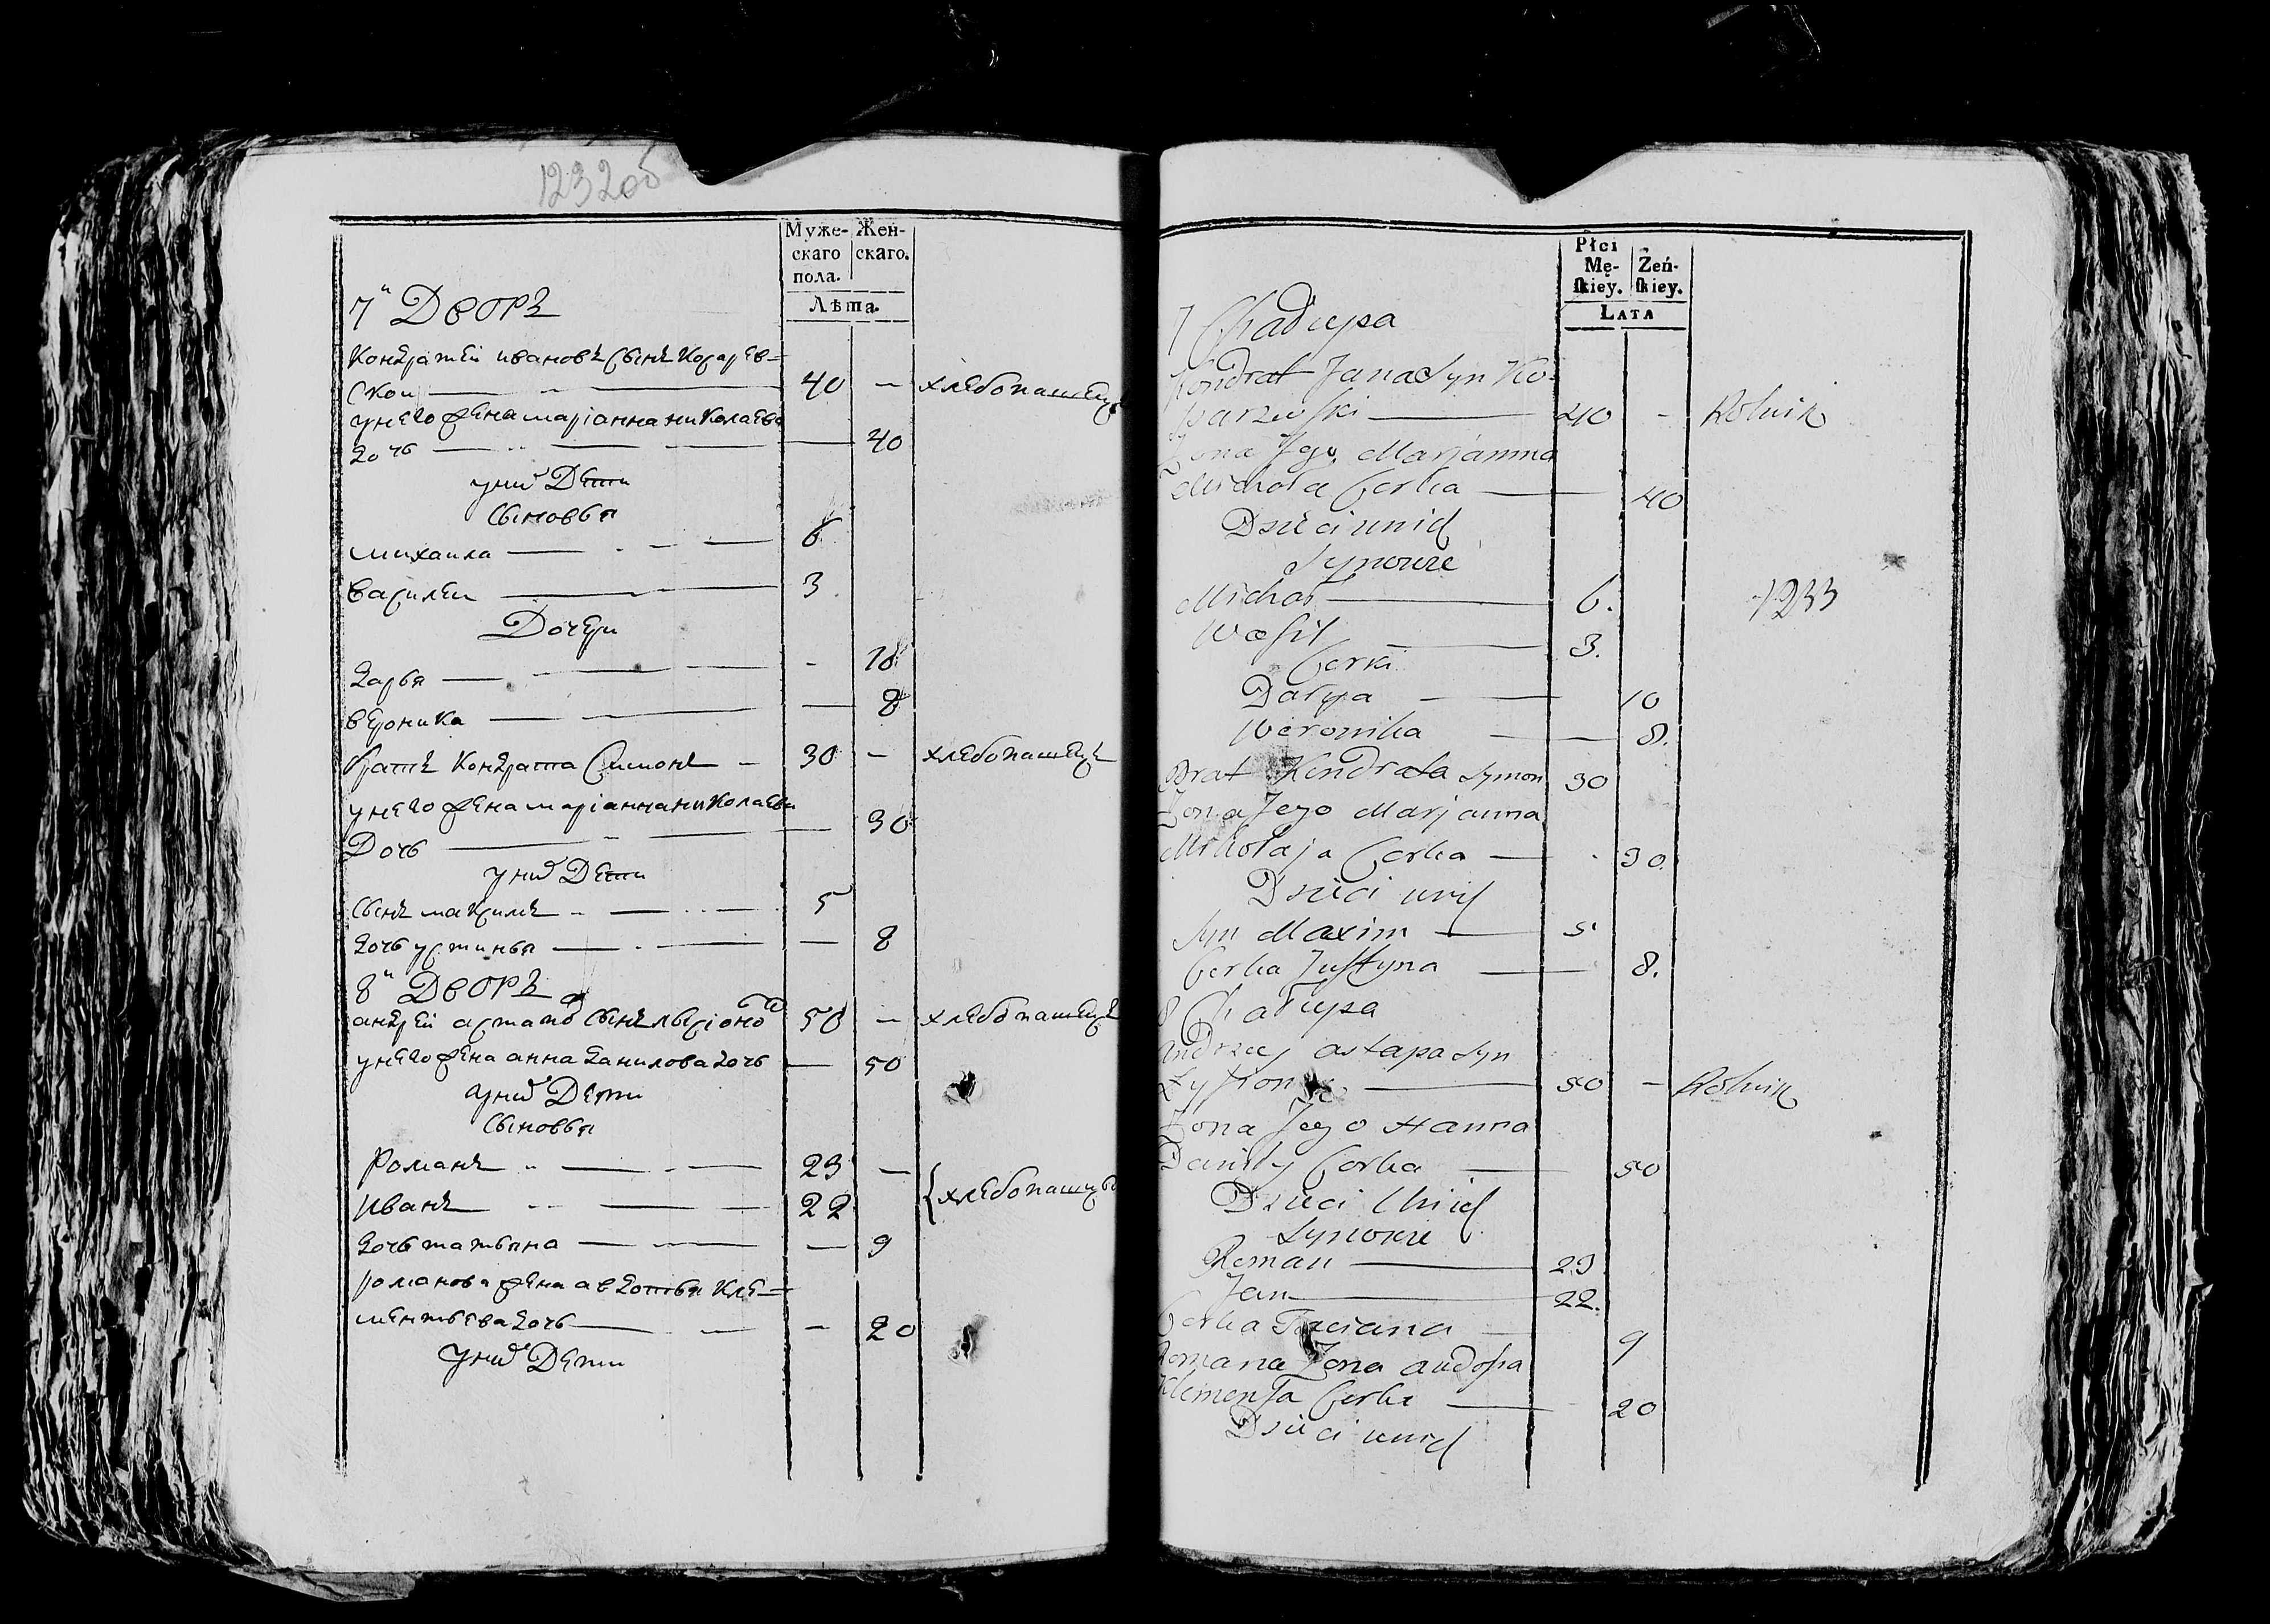 1232об
Муже- Жен-
скаго скаго.
пола.
Лѣта.
7й Дворъ
Кондратей Ивановъ сынъ Косарев-
скои 40 — хлебопашецъ
у него жена Маріанна Николаева
дочь 40
у них Дети
Сыновья
Михаила 6
Василеи 3
Дочери
Дарья - 10
Вероника 8
братъ Кондрата Симонъ 30 — хлебопашецъ
у него жена Маріанна Николаева
Дочь 30
у них Дети
Сынъ Максимъ 5
дочь Устинья — 8
8й Дворъ
Андрей Астапов Сынъ 50 — хлебопашецъ
у него жена Анна Данилова дочь 50
у них Дети
Сыновья
Романъ 23 —
Иванъ 22 {хлебопашцы
дочь Татьяна — 9
Романова жена Авдотья Кле-
ментьева дочь - 20
у них Дети
Płci
Mę- Żeń-
skiey. skiey.
LATA
7 Chałupa
Kondrat Jana Syn Ko-
sarzewski 40 - Rolnik
Żona Jego Marjanna
Mikoła Corka 40
Dzieci u nich
Synowie
Michał 6.
Wasil 3.
Corki
Darya 10
Weronika 8.
Brat Kondrata Symon 30
Żona Jego Marjanna
Mikołaja Corka 30.
Dzieci u nich
Syn Maxim 5
Corka Justyna 8.
8 Chałupa
Andrzey Astapa Syn
50 - Rolnik
Żona Jego Hanna
Daniły Corka 50
Dzieci u nich
Synowie
Roman 23
Jan 22.
Corka Taciana 9
Romana Żona Audosia
Klemensa Corka 20
Dzieci u nich
1233